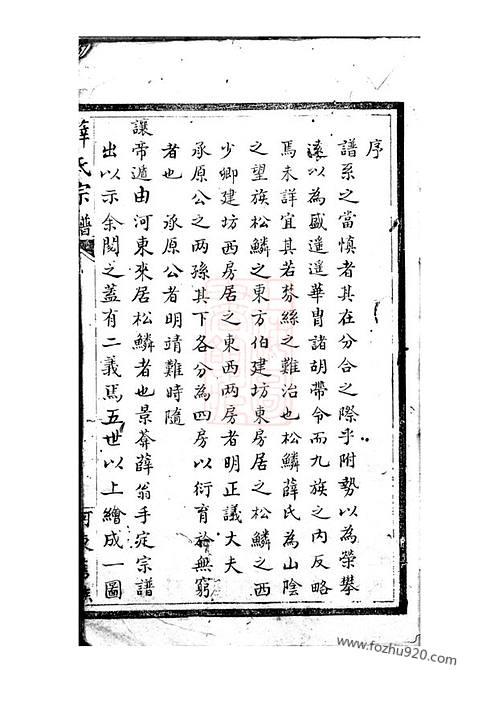 序
譜系之當慎者其在分合之際乎附勢以為榮攀
遠以為盛遥遥華胄諸胡帶令而九族之内反略
焉未詳宜其若棼絲之難治也松鱗薛氏為山陰
之望族松鱗之東方伯建坊東房居之松鱗之西
少卿建坊西房居之東西兩房者明正議大夫
承原公之兩孫其下各分為四房以衍育於無窮
者也 承原公者明靖難時隨
讓帝遁由河東來居松鱗者也景莽薛翁手定宗譜
出以示余閱之蓋有二義焉五世以上繪成一圖
薛氏宗譜
www.fozhu920.com